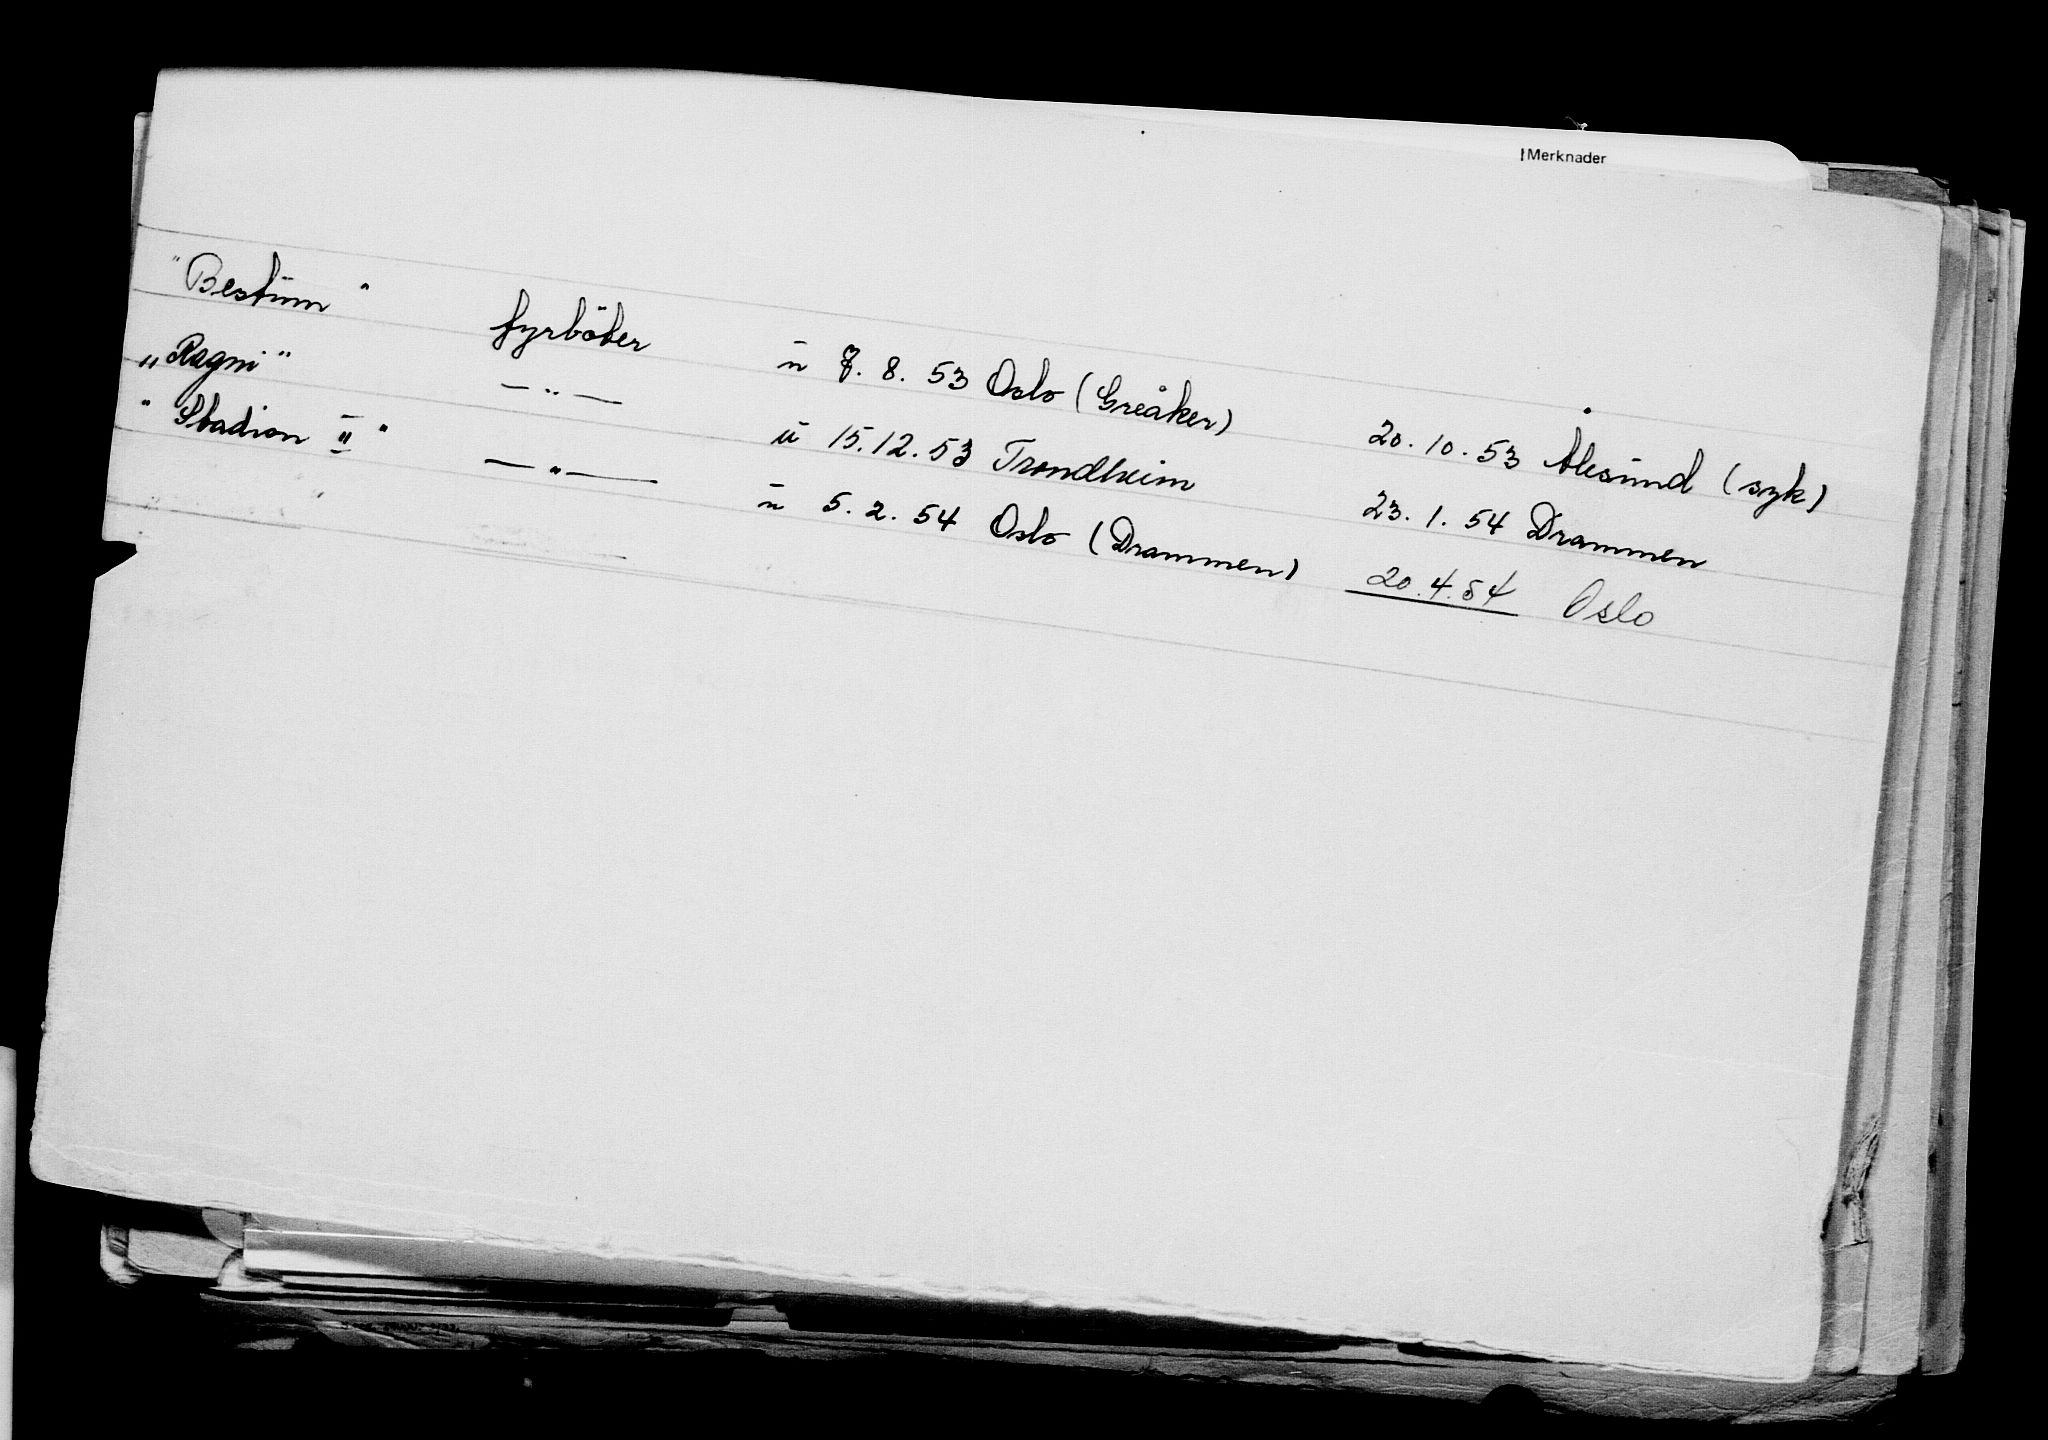 Merknader
"Bestum" fyrböter u 7. 8. 53 Oslo (Greåker) 20. 10. 53 Ålesund (syk)
"Ragni" — " — u 15. 12. 53 Trondheim 23. 1. 54 Drammen
"Stadion II" — " — u 5. 2. 54 Oslo (Drammen) 20. 4. 54 Oslo